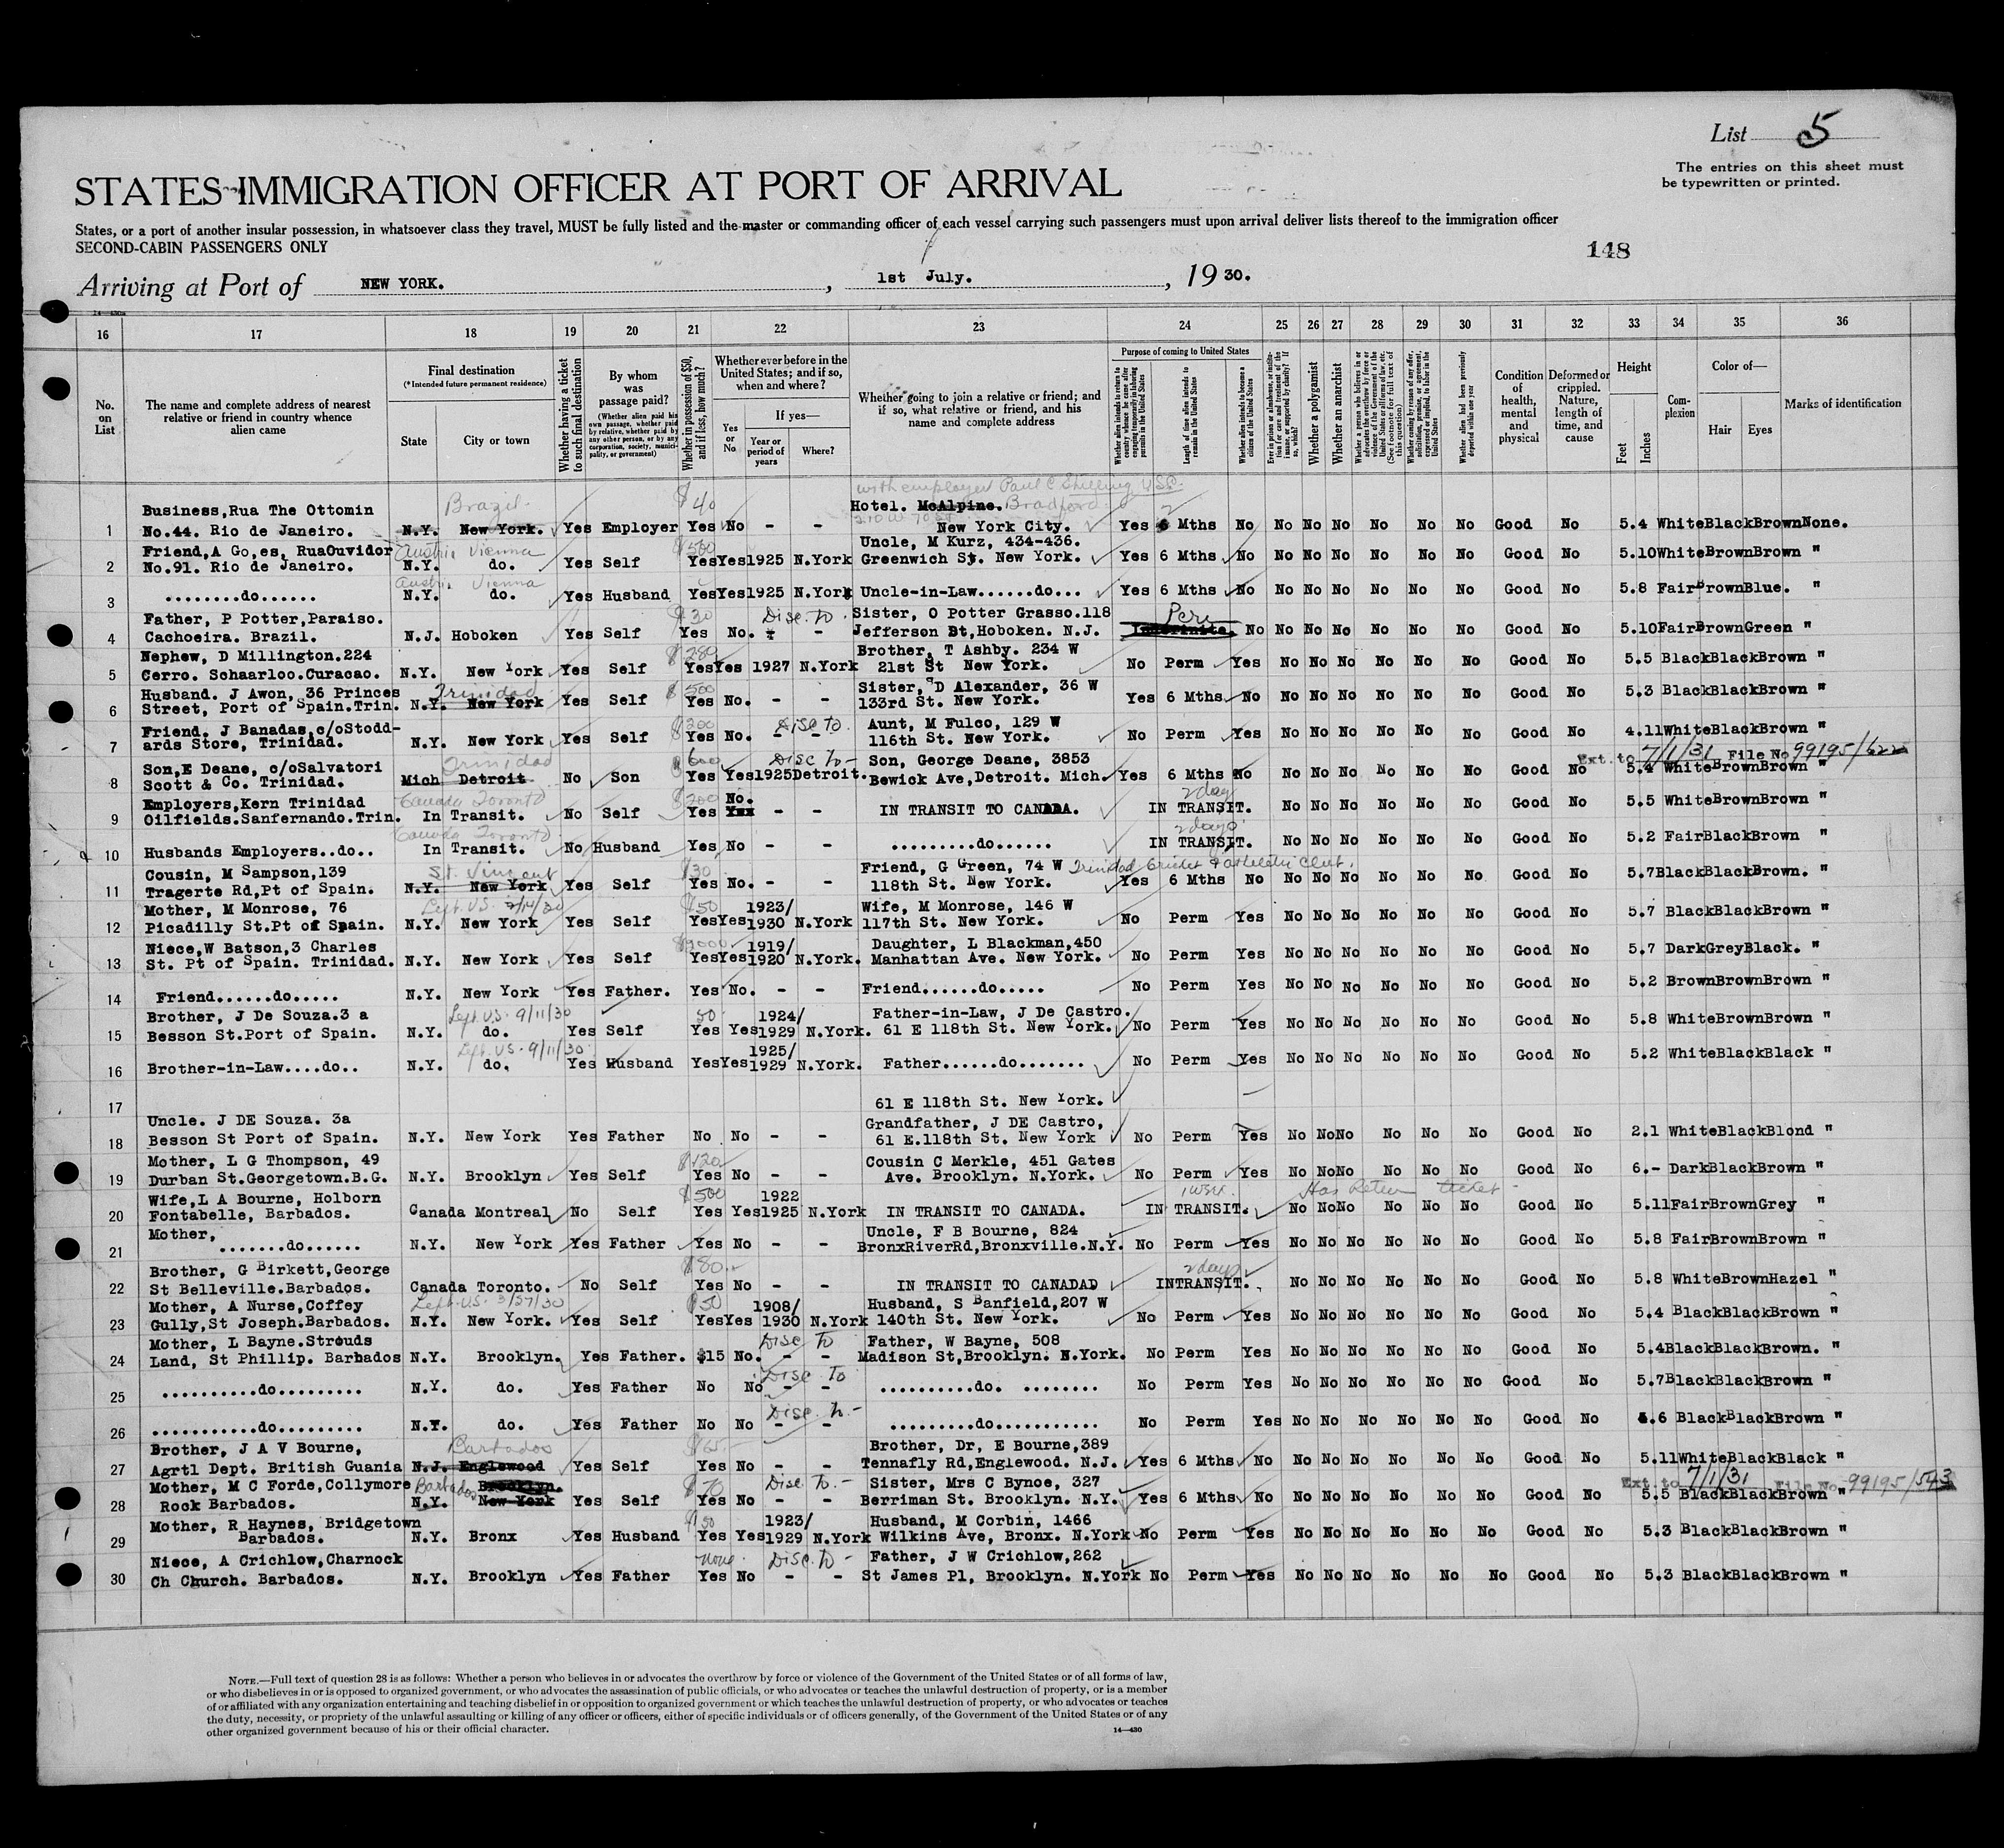 List 5
The entries on this sheet must
be typewritten or printed.
STATES IMMIGRATION OFFICER AT PORT OF ARRIVAL
States, or a port of another insular possession, in whatsoever class they travel, MUST be fully listed and the master or commanding officer of each vessel carrying such passengers must upon arrival deliver lists thereof to the immigration officer
SECOND-CABIN PASSENGERS ONLY
148
Arriving at Port of NEW YORK. , 1st July. , 19 30.
16 17 18 19 20 21 22 23 24 25 26 27 28 29 30 31 32 33 34 35 36
No. on List
The name and complete address of nearest relative or friend in country whence alien came
Final destination
(*Intended future permanent residence)
State
City or town
Whether having a ticket to such final destination
By whom was passage paid?
(Whether alien paid his own passage, whether paid by relative, whether paid by any other person, or by any corporation, society, municipality, or government)
Whether in possession of $50, and if less, how much?
Whether ever before in the United States; and if so, when and where?
Yes or No
If yes—
Year or period of years
Where?
Whether going to join a relative or friend; and if so, what relative or friend, and his name and complete address
Purpose of coming to United States
Whether alien intends to return to country whence he came after engaging temporarily in laboring pursuits in the United States
Length of time alien intends to remain in the United States
Whether alien intends to become a citizen of the United States
Ever in prison or almshouse, or institution for care and treatment of the insane, or supported by charity? If so, which?
Whether a polygamist
Whether an anarchist
Whether a person who believes in or advocates the overthrow by force or violence of the Government of the United States or all forms of law, etc. (See footnote for full text of this question)
Whether coming by reason of any offer, solicitation, promise, or agreement, expressed or implied, to labor in the United States
Whether alien had been previously deported within one year
Condition of health, mental and physical
Deformed or crippled. Nature, length of time, and cause
Height
Feet Inches
Complexion
Color of—
Hair Eyes
Marks of identification
Brazil. $40 with employer Paul C U.S.C.
Business,Rua The Ottomin Hotel. McAlpine. Bradford
1 No.44. Rio de Janeiro. N.Y. New York. Yes Employer Yes No - - New York City. Yes 6 Mths No No No No No No No Good No 5.4 White Black Brown None.
Friend,A Go,es, RuaOuvidor Austria Vienna $500 Uncle, M Kurz, 434-436.
2 No.91. Rio de Janeiro. N.Y. do. Yes Self Yes Yes 1925 N.York Greenwich St. New York. Yes 6 Mths No No No No No No No Good No 5.10 White Brown Brown "
Austria Vienna
3 ........do...... N.Y. do. Yes Husband Yes Yes 1925 N.York Uncle-in-Law......do... Yes 6 Mths No No No No No No No Good No 5.8 Fair Brown Blue. "
Father, P Potter,Paraiso. $30 Disc. to. Sister, O Potter Grasso.118
4 Cachoeira. Brazil. N.J. Hoboken Yes Self Yes No. - - Jefferson St,Hoboken. N.J. Indefinite. No No No No No No No Good No 5.10 Fair Brown Green "
Nephew, D Millington.224 $280 Brother, T Ashby. 234 W
5 Cerro. Schaarloo.Curacao. N.Y. New York Yes Self Yes Yes 1927 N.York 21st St New York. No Perm Yes No No No No No No Good No 5.5 Black Black Brown "
Husband. J Awon, 36 Princes Trinidad $500 Sister, D Alexander, 36 W
6 Street, Port of Spain.Trin. N.Y. New York Yes Self Yes No. - - 133rd St. New York. Yes 6 Mths No No No No No No No Good No 5.3 Black Black Brown "
Friend. J Banadas,c/oStodd- $200 Disc to. Aunt, M Fulco, 129 W
7 ards Store, Trinidad. N.Y. New York Yes Self Yes No. - - 116th St. New York. No Perm Yes No No No No No No Good No 4.11 White Black Brown "
Ext. to 7/1/31 File No 99195/622
Son,E Deane, c/oSalvatori Trinidad $600 Disc to- Son, George Deane, 3853
8 Scott & Co. Trinidad. Mich Detroit No Son Yes Yes 1925 Detroit. Bewick Ave,Detroit. Mich. Yes 6 Mths No No No No No No No Good No 5.4 White Brown Brown "
Employers,Kern Trinidad Canada Toronto $200 No. 2 day
9 Oilfields.Sanfernando.Trin. In Transit. No Self Yes Yes - - IN TRANSIT TO CANADA. IN TRANSIT. No No No No No No Good No 5.5 White Brown Brown "
Canada Toronto 2 days
10 Husbands Employers..do.. In Transit. No Husband Yes No - - .........do...... IN TRANSIT. No No No No No No Good No 5.2 Fair Black Brown "
Cousin, M Sampson,139 St. Vincent $30 Friend, G Green, 74 W Trinidad Cricket & Athletic Club.
11 Tragerte Rd,Pt of Spain. N.Y. New York Yes Self Yes No. - - 118th St. New York. Yes 6 Mths No No No No No No No Good No 5.7 Black Black Brown. "
Mother, M Monrose, 76 Left U.S. 3/14/30 $50 1923/ Wife, M Monrose, 146 W
12 Picadilly St.Pt of Spain. N.Y. New York Yes Self Yes Yes 1930 N.York 117th St. New York. No Perm Yes No No No No No No Good No 5.7 Black Black Brown "
Niece,W Batson,3 Charles 1919/ Daughter, L Blackman,450
13 St. Pt of Spain. Trinidad. N.Y. New York Yes Self Yes Yes 1920 N.York. Manhattan Ave. New York. No Perm Yes No No No No No No Good No 5.7 Dark Grey Black. "
14 Friend......do..... N.Y. New York Yes Father. Yes No. - - Friend......do..... No Perm Yes No No No No No No Good No 5.2 Brown Brown Brown "
Brother, J De Souza.3 a Left U.S. 9/11/30 50 1924/ Father-in-Law, J De Castro.
15 Besson St.Port of Spain. N.Y. do. Yes Self Yes Yes 1929 N.York. 61 E 118th St. New York. No Perm Yes No No No No No No Good No 5.8 White Brown Brown "
Left U.S. 9/11/30 1925/
16 Brother-in-Law....do.. N.Y. do. Yes Husband Yes Yes 1929 N.York. Father......do....... No Perm Yes No No No No No No Good No 5.2 White Black Black "
17 61 E 118th St. New York. -
Uncle. J DE Souza. 3a Grandfather, J DE Castro,
18 Besson St Port of Spain. N.Y. New York Yes Father No No - - 61 E.118th St. New York No Perm Yes No No No No No No Good No 2.1 White Black Blond "
Mother, L G Thompson, 49 $120 Cousin C Merkle, 451 Gates
19 Durban St.Georgetown.B.G. N.Y. Brooklyn Yes Self Yes No - - Ave. Brooklyn. N.York. No Perm Yes No No No No No No Good No 6.- Dark Black Brown "
Wife,L A Bourne, Holborn $500 1922 1 week. Has Return ticket
20 Fontabelle, Barbados. Canada Montreal No Self Yes Yes 1925 N.York IN TRANSIT TO CANADA. IN TRANSIT. No No No No No No Good No 5.11 Fair Brown Grey "
Mother, Uncle, F B Bourne, 824
21 .......do...... N.Y. New York Yes Father Yes No - - BronxRiverRd,Bronxville.N.Y. No Perm Yes No No No No No No Good No 5.8 Fair Brown Brown "
Brother, G Birkett,George $80 2 days
22 St Belleville.Barbados. Canada Toronto. No Self Yes No - - IN TRANSIT TO CANADAD INTRANSIT. No No No No No No Good No 5.8 White Brown Hazel "
Mother, A Nurse,Coffey Left U.S. 3/27/30 $50 1908/ Husband, S Banfield,207 W
23 Gully,St Joseph.Barbados. N.Y. New York. Yes Self Yes Yes 1930 N.York 140th St. New York. No Perm Yes No No No No No No Good No 5.4 Black Black Brown "
Mother, L Bayne.Strouds Disc to Father, W Bayne, 508
24 Land, St Phillip. Barbados N.Y. Brooklyn. Yes Father. $15 No. - - Madison St,Brooklyn. N.York. No Perm Yes No No No No No No Good No 5.4 Black Black Brown. "
Disc to
25 ..........do......... N.Y. do. Yes Father No No - - ..........do. ........ No Perm Yes No No No No No No Good No 5.7 Black Black Brown "
Disc. to-
26 ...........do.......... N.Y. do. Yes Father No No - - .........do........... No Perm Yes No No No No No No Good No 4.6 Black Black Brown "
Brother, J A V Bourne, Barbados $65 Brother, Dr, E Bourne,389
27 Agrtl Dept. British Guania N.J. Englewood Yes Self Yes No - - Tennafly Rd,Englewood. N.J. Yes 6 Mths No No No No No No No Good No 5.11 White Black Black "
Ext. to 7/1/31 File No 99195/543
Mother, M C Forde,Collymore Barbados Brooklyn. $70 Disc to.- Sister, Mrs C Bynoe, 327
28 Rock Barbados. N.Y. New York Yes Self Yes No - - Berriman St. Brooklyn. N.Y. Yes 6 Mths No No No No No No No Good No 5.5 Black Black Brown "
Mother, R Haynes, Bridgetown $50 1923/ Husband, M Corbin, 1466
29 Barbados. N.Y. Bronx Yes Husband Yes Yes 1929 N.York Wilkins Ave, Bronx. N.York No Perm Yes No No No No No No Good No 5.3 Black Black Brown "
Niece, A Crichlow,Charnock none. Disc. to- Father, J W Crichlow,262
30 Ch Church. Barbados. N.Y. Brooklyn Yes Father Yes No - - St James Pl, Brooklyn. N.York No Perm Yes No No No No No No Good No 5.3 Black Black Brown "
NOTE.—Full text of question 28 is as follows: Whether a person who believes in or advocates the overthrow by force or violence of the Government of the United States or of all forms of law,
or who disbelieves in or is opposed to organized government, or who advocates the assassination of public officials, or who advocates or teaches the unlawful destruction of property, or is a member
of or affiliated with any organization entertaining and teaching disbelief in or opposition to organized government or which teaches the unlawful destruction of property, or who advocates or teaches
the duty, necessity, or propriety of the unlawful assaulting or killing of any officer or officers, either of specific individuals or of officers generally, of the Government of the United States or of any
other organized government because of his or their official character.
14—430